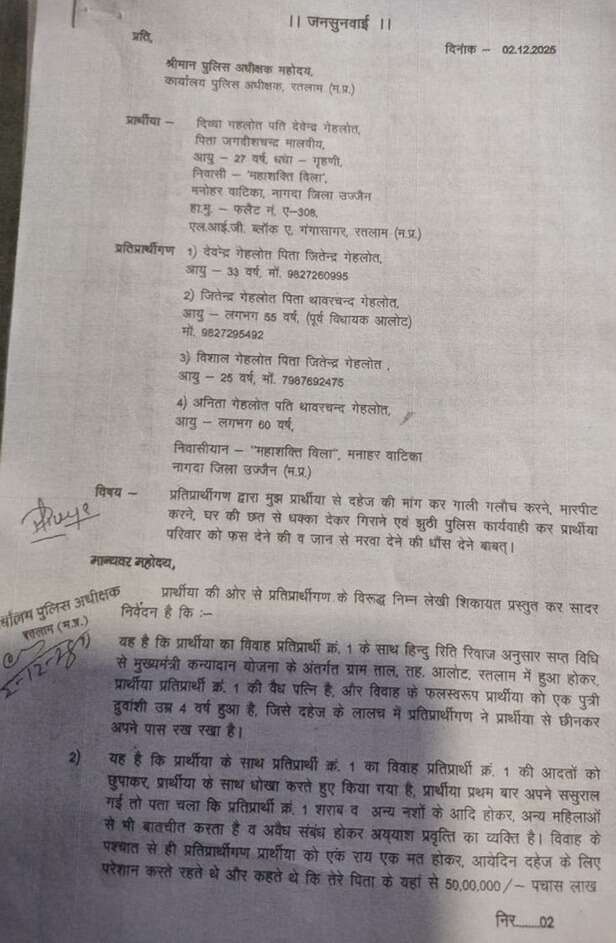 ।। जनसुनवाई ।।
प्रति,
दिनांक – 02.12.2025
श्रीमान पुलिस अधीक्षक महोदय,
कार्यालय पुलिस अधीक्षक, रतलाम (म.प्र.)
प्रार्थीया – दिव्या गेहलोत पति देवेन्द्र गेहलोत,
पिता जगदीशचन्द मालवीय,
आयु – 27 वर्ष, धंधा – गृहणी,
निवासी – 'महाशक्ति विला',
मनोहर वाटिका, नागदा जिला उज्जैन
हा.मु. – फलैट नं. ए–308,
एल.आई.जी. ब्लॉक ए. गंगासागर, रतलाम (म.प्र.)
प्रतिप्रार्थीगण 1) देवेन्द्र गेहलोत पिता जितेन्द्र गेहलोत,
आयु – 33 वर्ष, मों. 9827260995
2) जितेन्द्र गेहलोत पिता थावरचन्द गेहलोत,
आयु – लगभग 55 वर्ष, (पूर्व विधायक आलोट)
मों. 9827295492
3) विशाल गेहलोत पिता जितेन्द्र गेहलोत ,
आयु – 25 वर्ष, मों. 7987692475
4) अनिता गेहलोत पति थावरचन्द गेहलोत,
आयु – लगभग 60 वर्ष,
निवासीयान – "महाशक्ति विला", मनाहर वाटिका
नागदा जिला उज्जैन (म.प्र.)
विषय – प्रतिप्रार्थीगण द्वारा मुझ प्रार्थीया से दहेज की मांग कर गाली गलौच करने, मारपीट
करने, घर की छत से धक्का देकर गिराने एवं झुठी पुलिस कार्यवाही कर प्रार्थीया
परिवार को फस देने की व जान से मरवा देने की धौंस देने बाबत्।
मान्यवर महोदय,
प्रार्थीया की ओर से प्रतिप्रार्थीगण के विरूद्ध निम्न लेखी शिकायत प्रस्तुत कर सादर
निवेदन है कि :–
र्यालय पुलिस अधीक्षक
रतलाम (म.प्र.)
यह है कि प्रार्थीया का विवाह प्रतिप्रार्थी क्रं. 1 के साथ हिन्दु रिति रिवाज अनुसार सप्त विधि
से मुख्यमंत्री कन्यादान योजना के अंतर्गत ग्राम ताल, तह. आलोट, रतलाम में हुआ होकर,
प्रार्थीया प्रतिप्रार्थी क्रं. 1 की वैध पत्नि है, और विवाह के फलस्वरूप प्रार्थीया को एक पुत्री
ध्रुवांशी उम्र 4 वर्ष हुआ है, जिसे दहेज के लालच में प्रतिप्रार्थीगण ने प्रार्थीया से छीनकर
अपने पास रख रखा है।
2) यह है कि प्रार्थीया के साथ प्रतिप्रार्थी क्रं. 1 का विवाह प्रतिप्रार्थी क्रं. 1 की आदतों को
छुपाकर, प्रार्थीया के साथ धोखा करते हुए किया गया है, प्रार्थीया प्रथम बार अपने ससुराल
गई तो पता चला कि प्रतिप्रार्थी क्रं. 1 शराब व अन्य नशों के आदि होकर, अन्य महिलाओं
से भी बातचीत करता है व अवैध संबंध होकर अय्याश प्रवृत्ति का व्यक्ति है। विवाह के
पश्चात से ही प्रतिप्रार्थीगण प्रार्थीया को एक राय एक मत होकर, आयेदिन दहेज के लिए
परेशान करते रहते थे और कहते थे कि तेरे पिता के यहां से 50,00,000/– पचास लाख
निर.......02